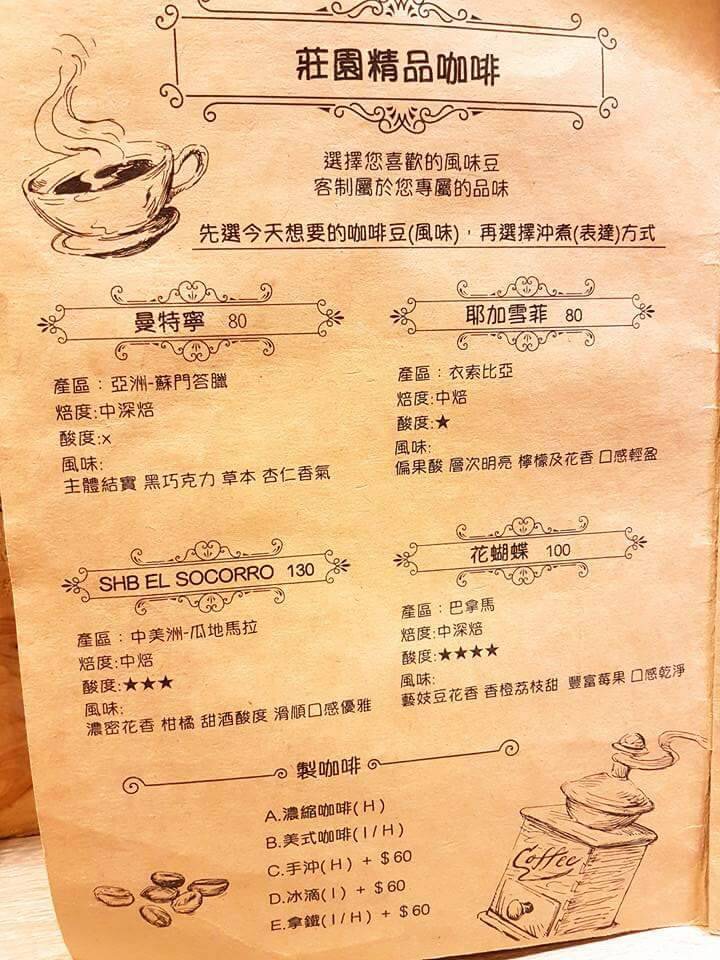 莊園精品咖啡
選擇您喜歡的風味豆
客制屬於您專屬的品味
先選今天想要的咖啡豆(風味)，再選擇沖煮(表達)方式
曼特寧 80
產區：亞洲-蘇門答臘
焙度:中深焙
酸度:x
風味:
主體結實 黑巧克力 草本 杏仁香氣
耶加雪菲 80
產區：衣索比亞
焙度:中焙
酸度:★
風味:
偏果酸 層次明亮 檸檬及花香 口感輕盈
SHB EL SOCORRO 130
產區：中美洲-瓜地馬拉
焙度:中焙
酸度:★★★
風味:
濃密花香 柑橘 甜酒酸度 滑順口感優雅
花蝴蝶 100
產區：巴拿馬
焙度:中深焙
酸度:★★★★
風味:
藝妓豆花香 香橙荔枝甜 豐富莓果 口感乾淨
製咖啡
A.濃縮咖啡(H)
B.美式咖啡(I/H)
C.手沖(H) + $60
D.冰滴(I) + $60
E.拿鐵(I/H) + $60
Coffee